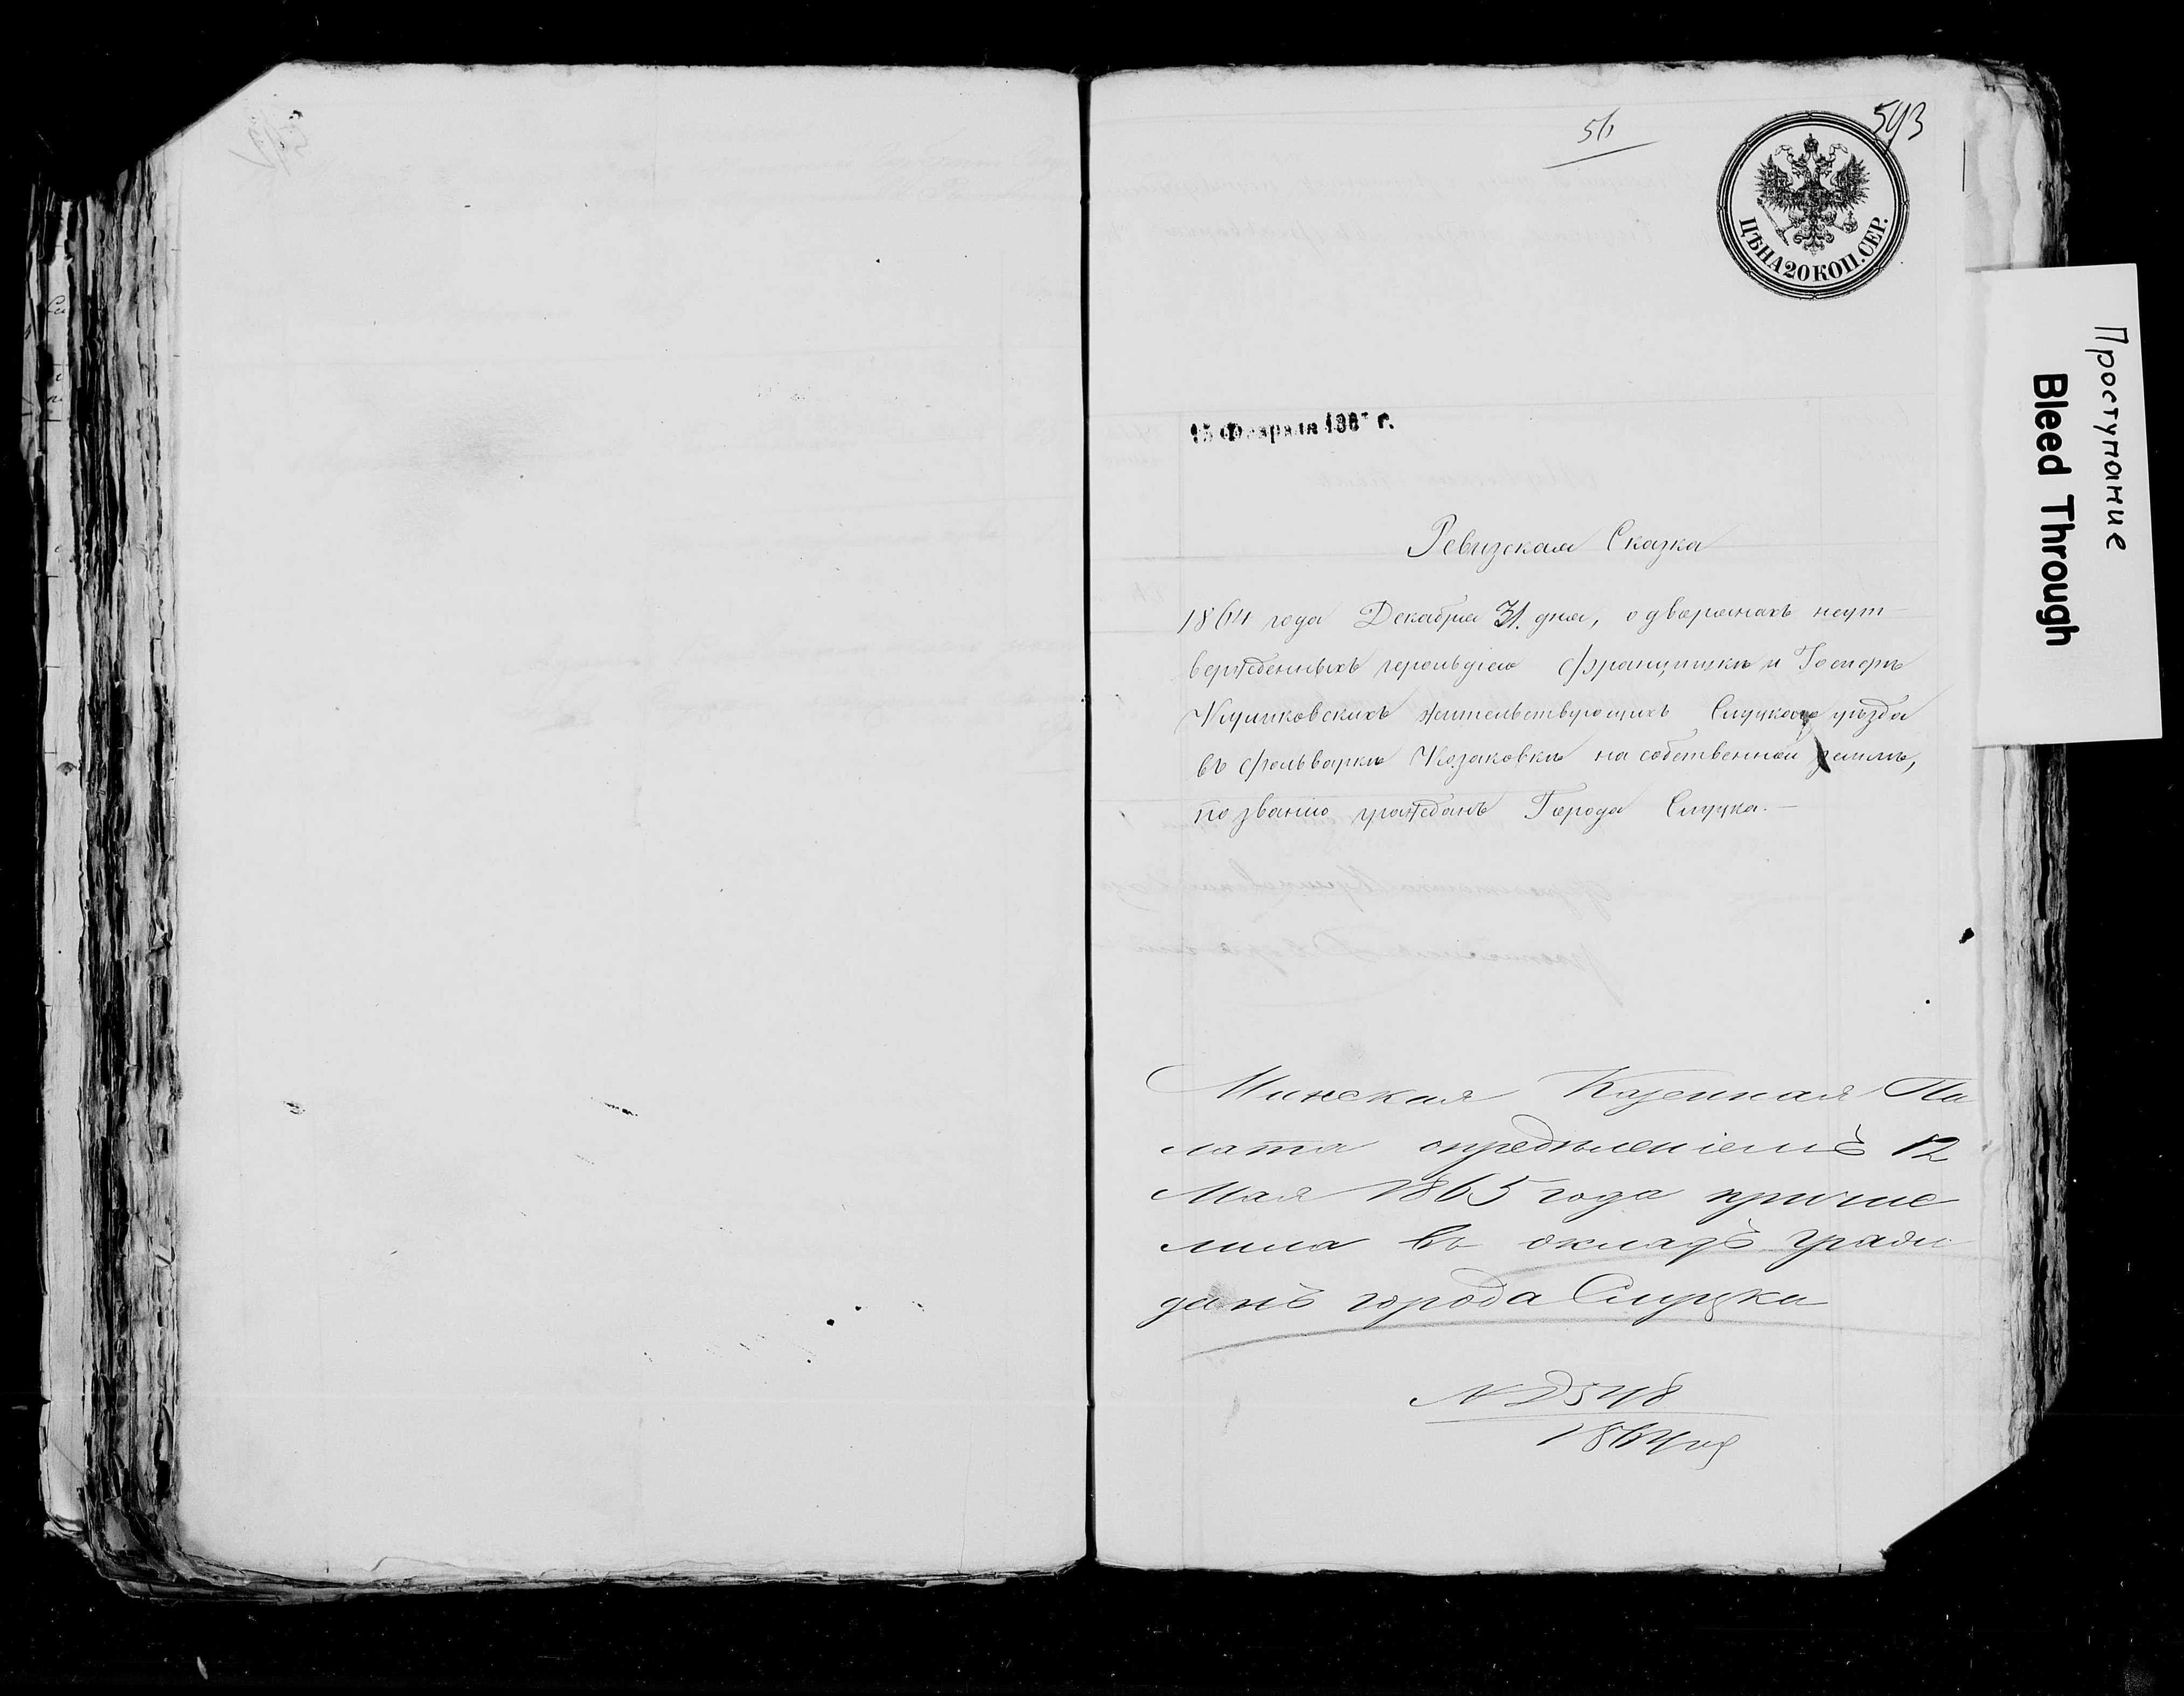 56
593
ЦѢНА 20 КОП. СЕР.
Проступание
Bleed Through
15 Февраля 186 г.
Ревизская Сказка
1864 года Декабря 31. дня, о дворянахъ неут-
вержденныхъ герольдіею Францишкѣ и Іосифѣ
жительствующихъ Слуцкаго уѣзда
въ фольваркѣ Козаковкѣ на собственной землѣ,
по званію гражданъ Города Слуцка.—
Минская Казенная Па
лата опредѣленіемъ 12
Мая 1865 года причи
слила въ окладъ граж
данъ города Слуцка
№ 2548
1864 г.